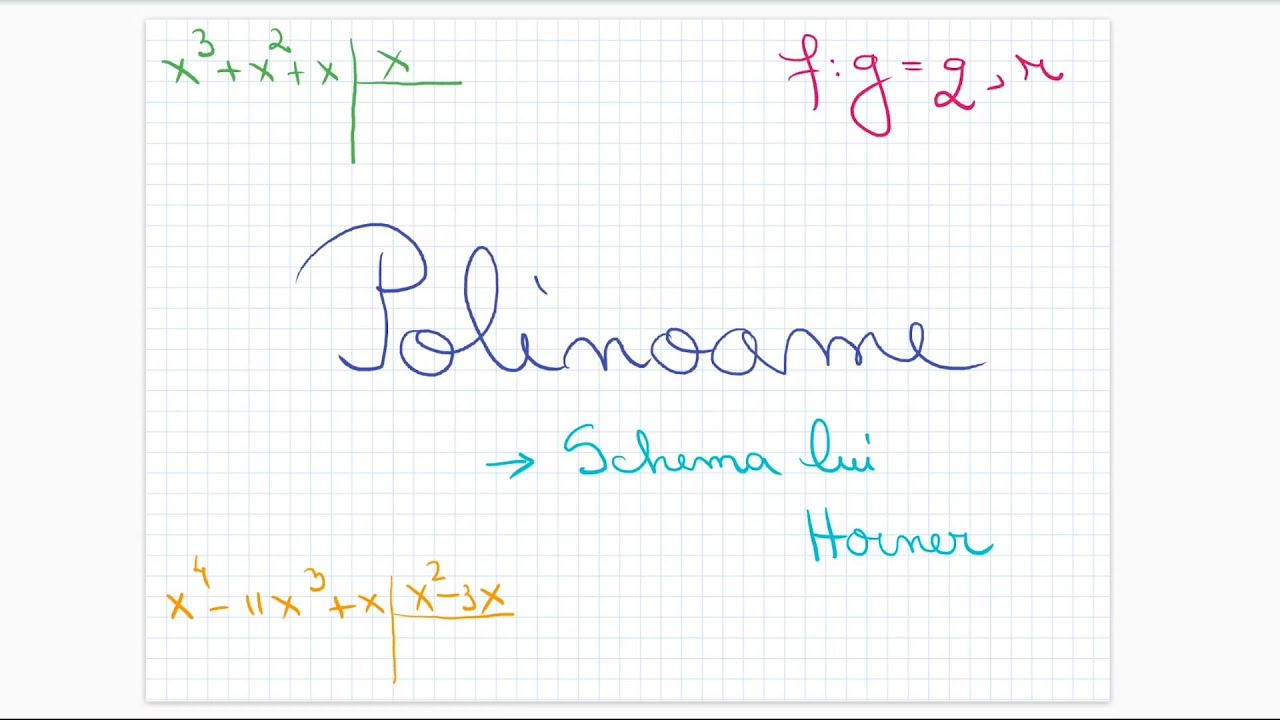 x³ + x² + x | x
f : g = q, r
Polinoame
→ Schema lui
Horner
x⁴ - 11x³ + x | x² - 3x